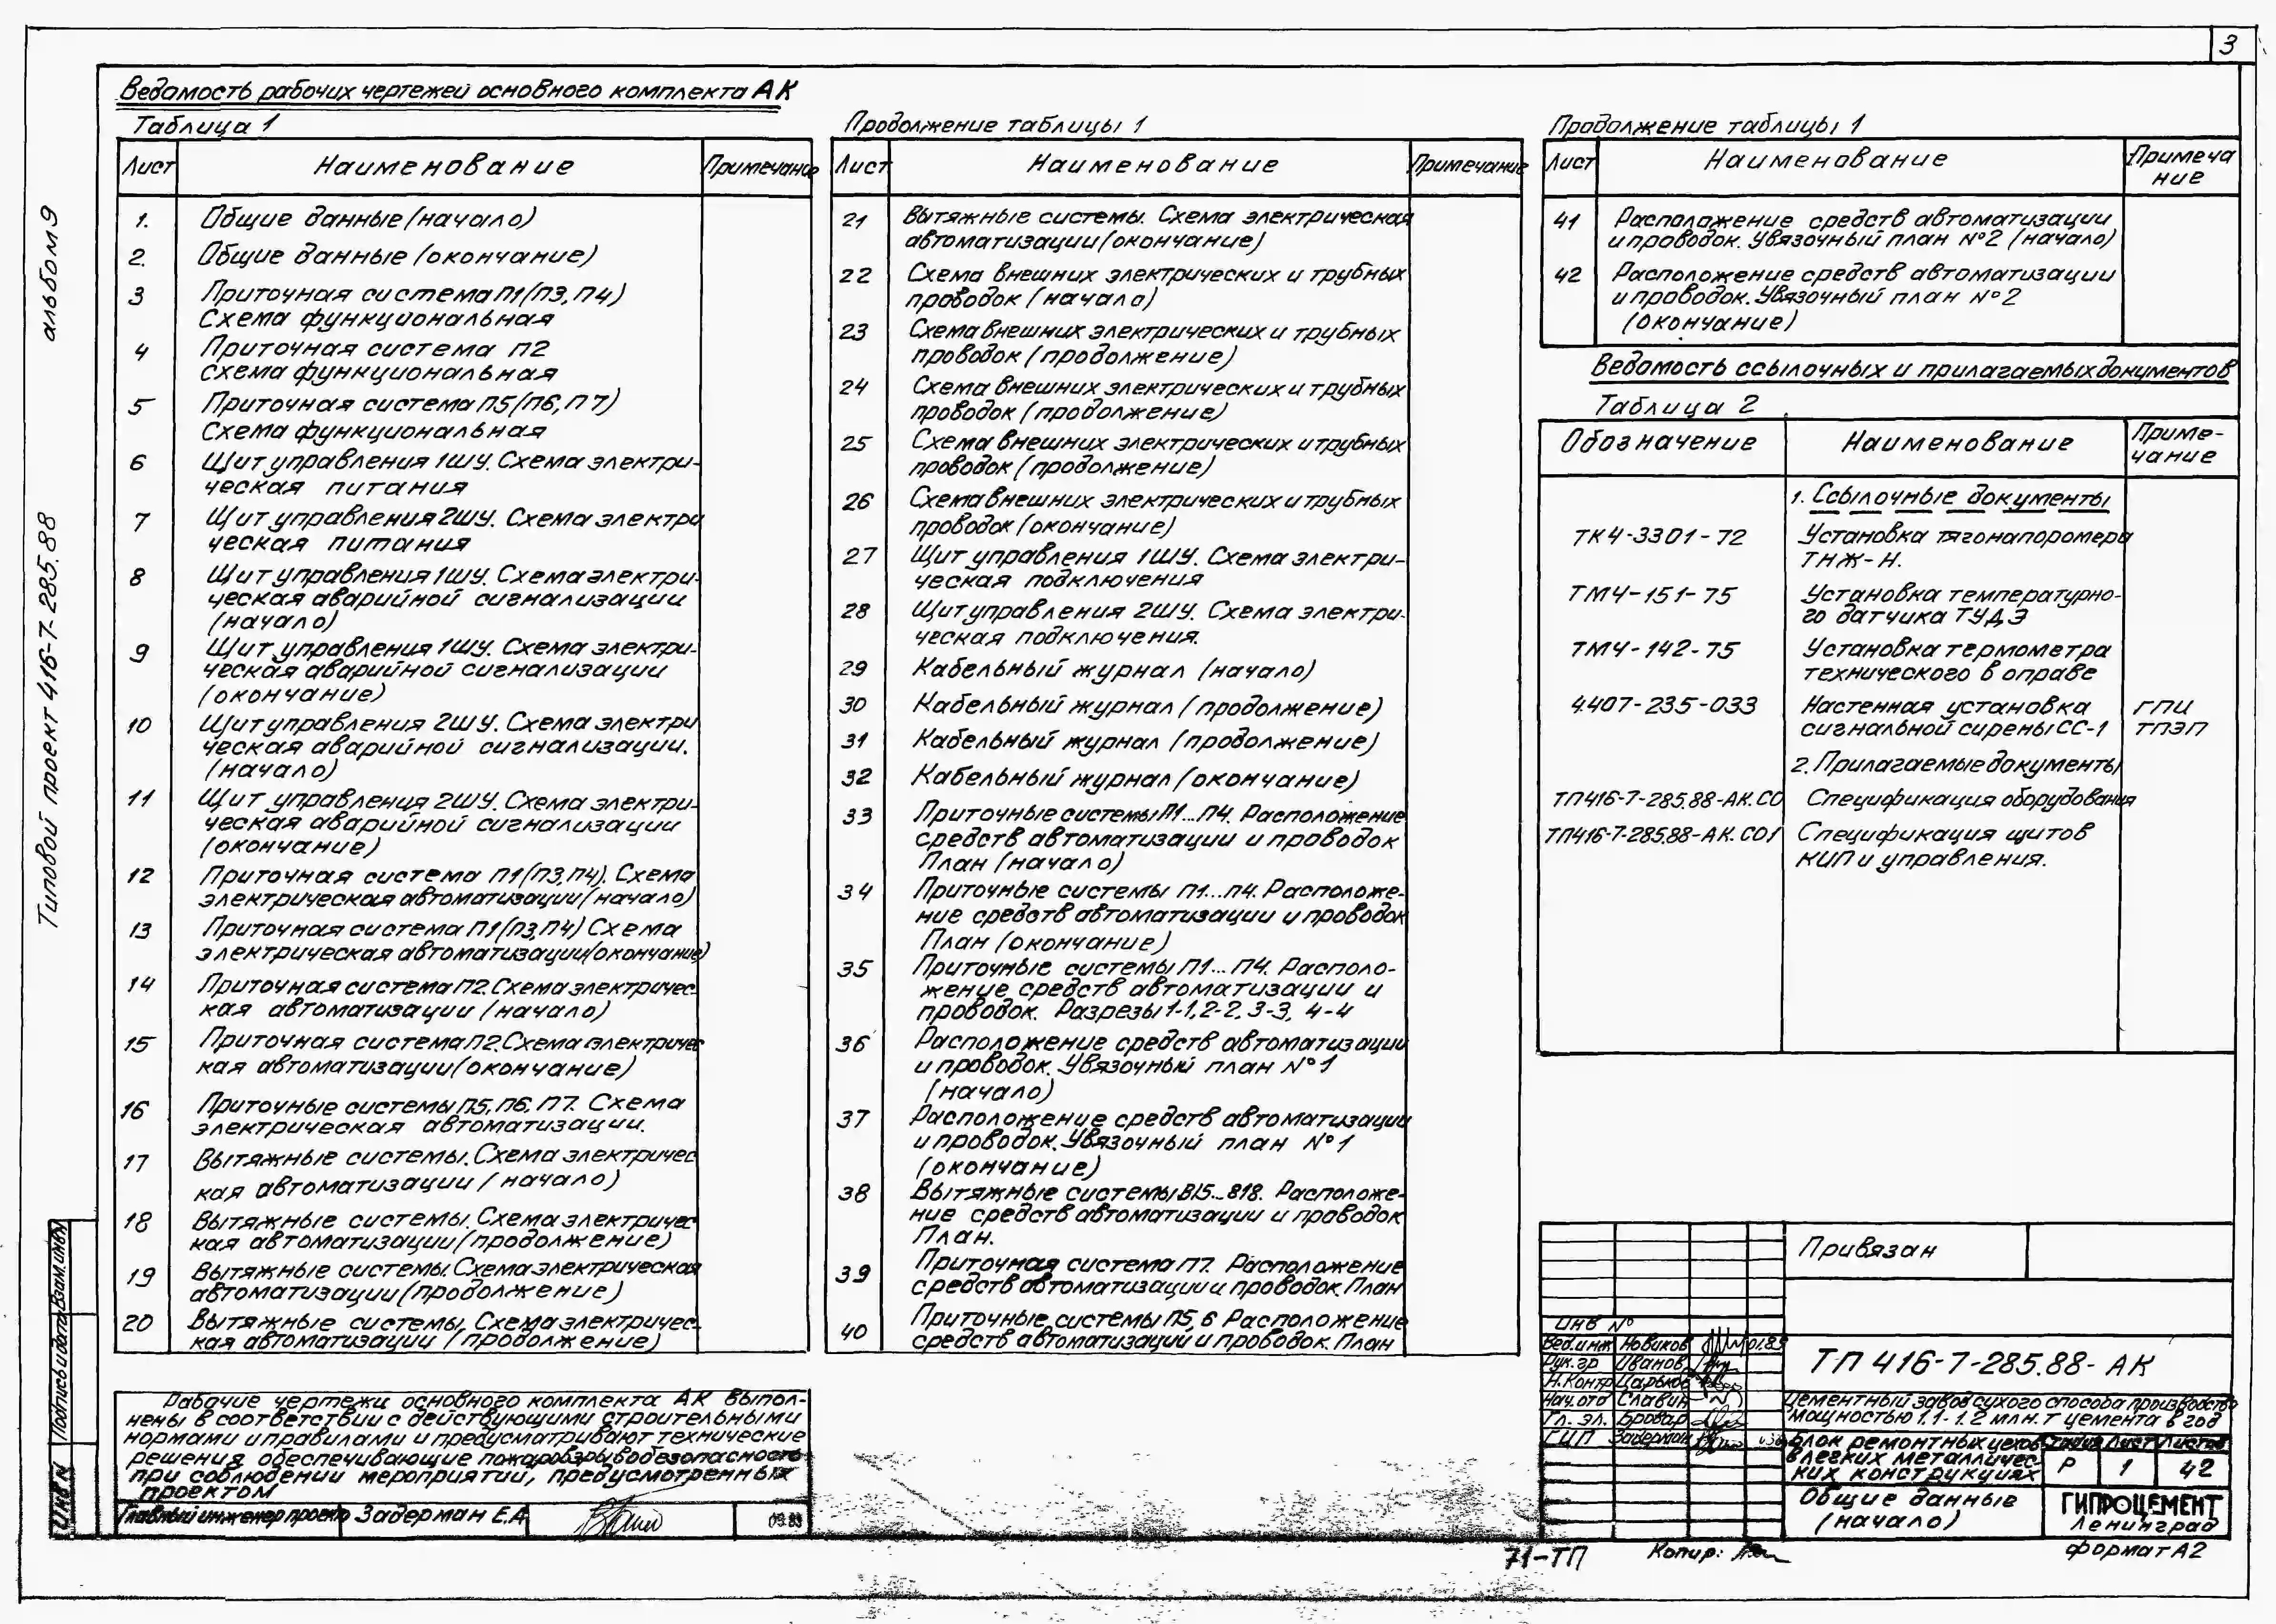 3
альбом 9
Типовой проект 416-7-285.88
Взам.инв.N
Подпись и дата
Инв.N
Ведомость рабочих чертежей основного комплекта АК
Таблица 1
Лист Наименование Примечание
1. Общие данные (начало)
2. Общие данные (окончание)
3 Приточная система П1(П3, П4)
Схема функциональная
4 Приточная система П2
схема функциональная
5 Приточная система П5(П6, П7)
Схема функциональная
6 Щит управления 1ШУ. Схема электри-
ческая питания
7 Щит управления 2ШУ. Схема электри
ческая питания
8 Щит управления 1ШУ. Схема электри-
ческая аварийной сигнализации
(начало)
9 Щит управления 1ШУ. Схема электри-
ческая аварийной сигнализации
(окончание)
10 Щит управления 2ШУ. Схема электри
ческая аварийной сигнализации.
(начало)
11 Щит управления 2ШУ. Схема электри-
ческая аварийной сигнализации
(окончание)
12 Приточная система П1(П3,П4). Схема
электрическая автоматизации (начало)
13 Приточная система П1(П3,П4) Схема
электрическая автоматизации(окончание)
14 Приточная система П2. Схема электричес-
кая автоматизации (начало)
15 Приточная система П2. Схема электричес
кая автоматизации (окончание)
16 Приточные системы П5, П6, П7. Схема
электрическая автоматизации.
17 Вытяжные системы. Схема электричес
кая автоматизации (начало)
18 Вытяжные системы. Схема электричес
кая автоматизации (продолжение)
19 Вытяжные системы. Схема электрическая
автоматизации (продолжение)
20 Вытяжные системы. Схема электричес-
кая автоматизации (продолжение)
Рабочие чертежи основного комплекта АК выпол-
нены в соответствии с действующими строительными
нормами и правилами и предусматривают технические
решения, обеспечивающие пожаровзрывобезопасность
при соблюдении мероприятий, предусмотренных
проектом
Главный инженер проекта Задерман Е.А.
Продолжение таблицы 1
Лист Наименование Примечание
21 Вытяжные системы. Схема электрическая
автоматизации (окончание)
22 Схема внешних электрических и трубных
проводок (начало)
23 Схема внешних электрических и трубных
проводок (продолжение)
24 Схема внешних электрических и трубных
проводок (продолжение)
25 Схема внешних электрических и трубных
проводок (продолжение)
26 Схема внешних электрических и трубных
проводок (окончание)
27 Щит управления 1ШУ. Схема электри-
ческая подключения
28 Щит управления 2ШУ. Схема электри-
ческая подключения.
29 Кабельный журнал (начало)
30 Кабельный журнал (продолжение)
31 Кабельный журнал (продолжение)
32 Кабельный журнал (окончание)
33 Приточные системы П1...П4. Расположение
средств автоматизации и проводок
План (начало)
34 Приточные системы П1...П4. Расположе-
ние средств автоматизации и проводок
План (окончание)
35 Приточные системы П1...П4. Располо-
жение средств автоматизации и
проводок. Разрезы 1-1, 2-2, 3-3, 4-4
36 Расположение средств автоматизации
и проводок. Увязочный план №1
(начало)
37 Расположение средств автоматизации
и проводок. Увязочный план №1
(окончание)
38 Вытяжные системы В15...В18. Расположе-
ние средств автоматизации и проводок
План.
39 Приточная система П7. Расположение
средств автоматизации и проводок. План
40 Приточные системы П5,6 Расположение
средств автоматизаций и проводок. План
Продолжение таблицы 1
Лист Наименование Примеча
ние
41 Расположение средств автоматизации
и проводок. Увязочный план №2 (начало)
42 Расположение средств автоматизации
и проводок. Увязочный план №2
(окончание)
Ведомость ссылочных и прилагаемых документов
Таблица 2
Обозначение Наименование Приме-
чание
1. Ссылочные документы
ТК4-3301-72 Установка тягонапоромера
ТНЖ-Н.
ТМ4-151-75 Установка температурно-
го датчика ТУДЭ
ТМ4-142-75 Установка термометра
технического в оправе
4.407-235-033 Настенная установка ГПИ
сигнальной сирены СС-1 ТПЭП
2. Прилагаемые документы
ТП416-7-285.88-АК.СО Спецификация оборудования
ТП416-7-285.88-АК.СО1 Спецификация щитов
КИП и управления.
Привязан
Инв №
Вед.инж Новиков 01.89
Рук.гр Иванов
Н.Контр Царьков
Нач.отд Славин
Гл. эл. Бровар
ГИП Задерман
ТП 416-7-285.88- АК
Цементный завод сухого способа производства
мощностью 1.1-1.2 млн.т цемента в год
Блок ремонтных цехов
в легких металличес-
ких конструкциях
Стадия Лист Листов
Р 1 42
Общие данные
(начало)
ГИПРОЦЕМЕНТ
Ленинград
71-ТП
Копир:
формат А2